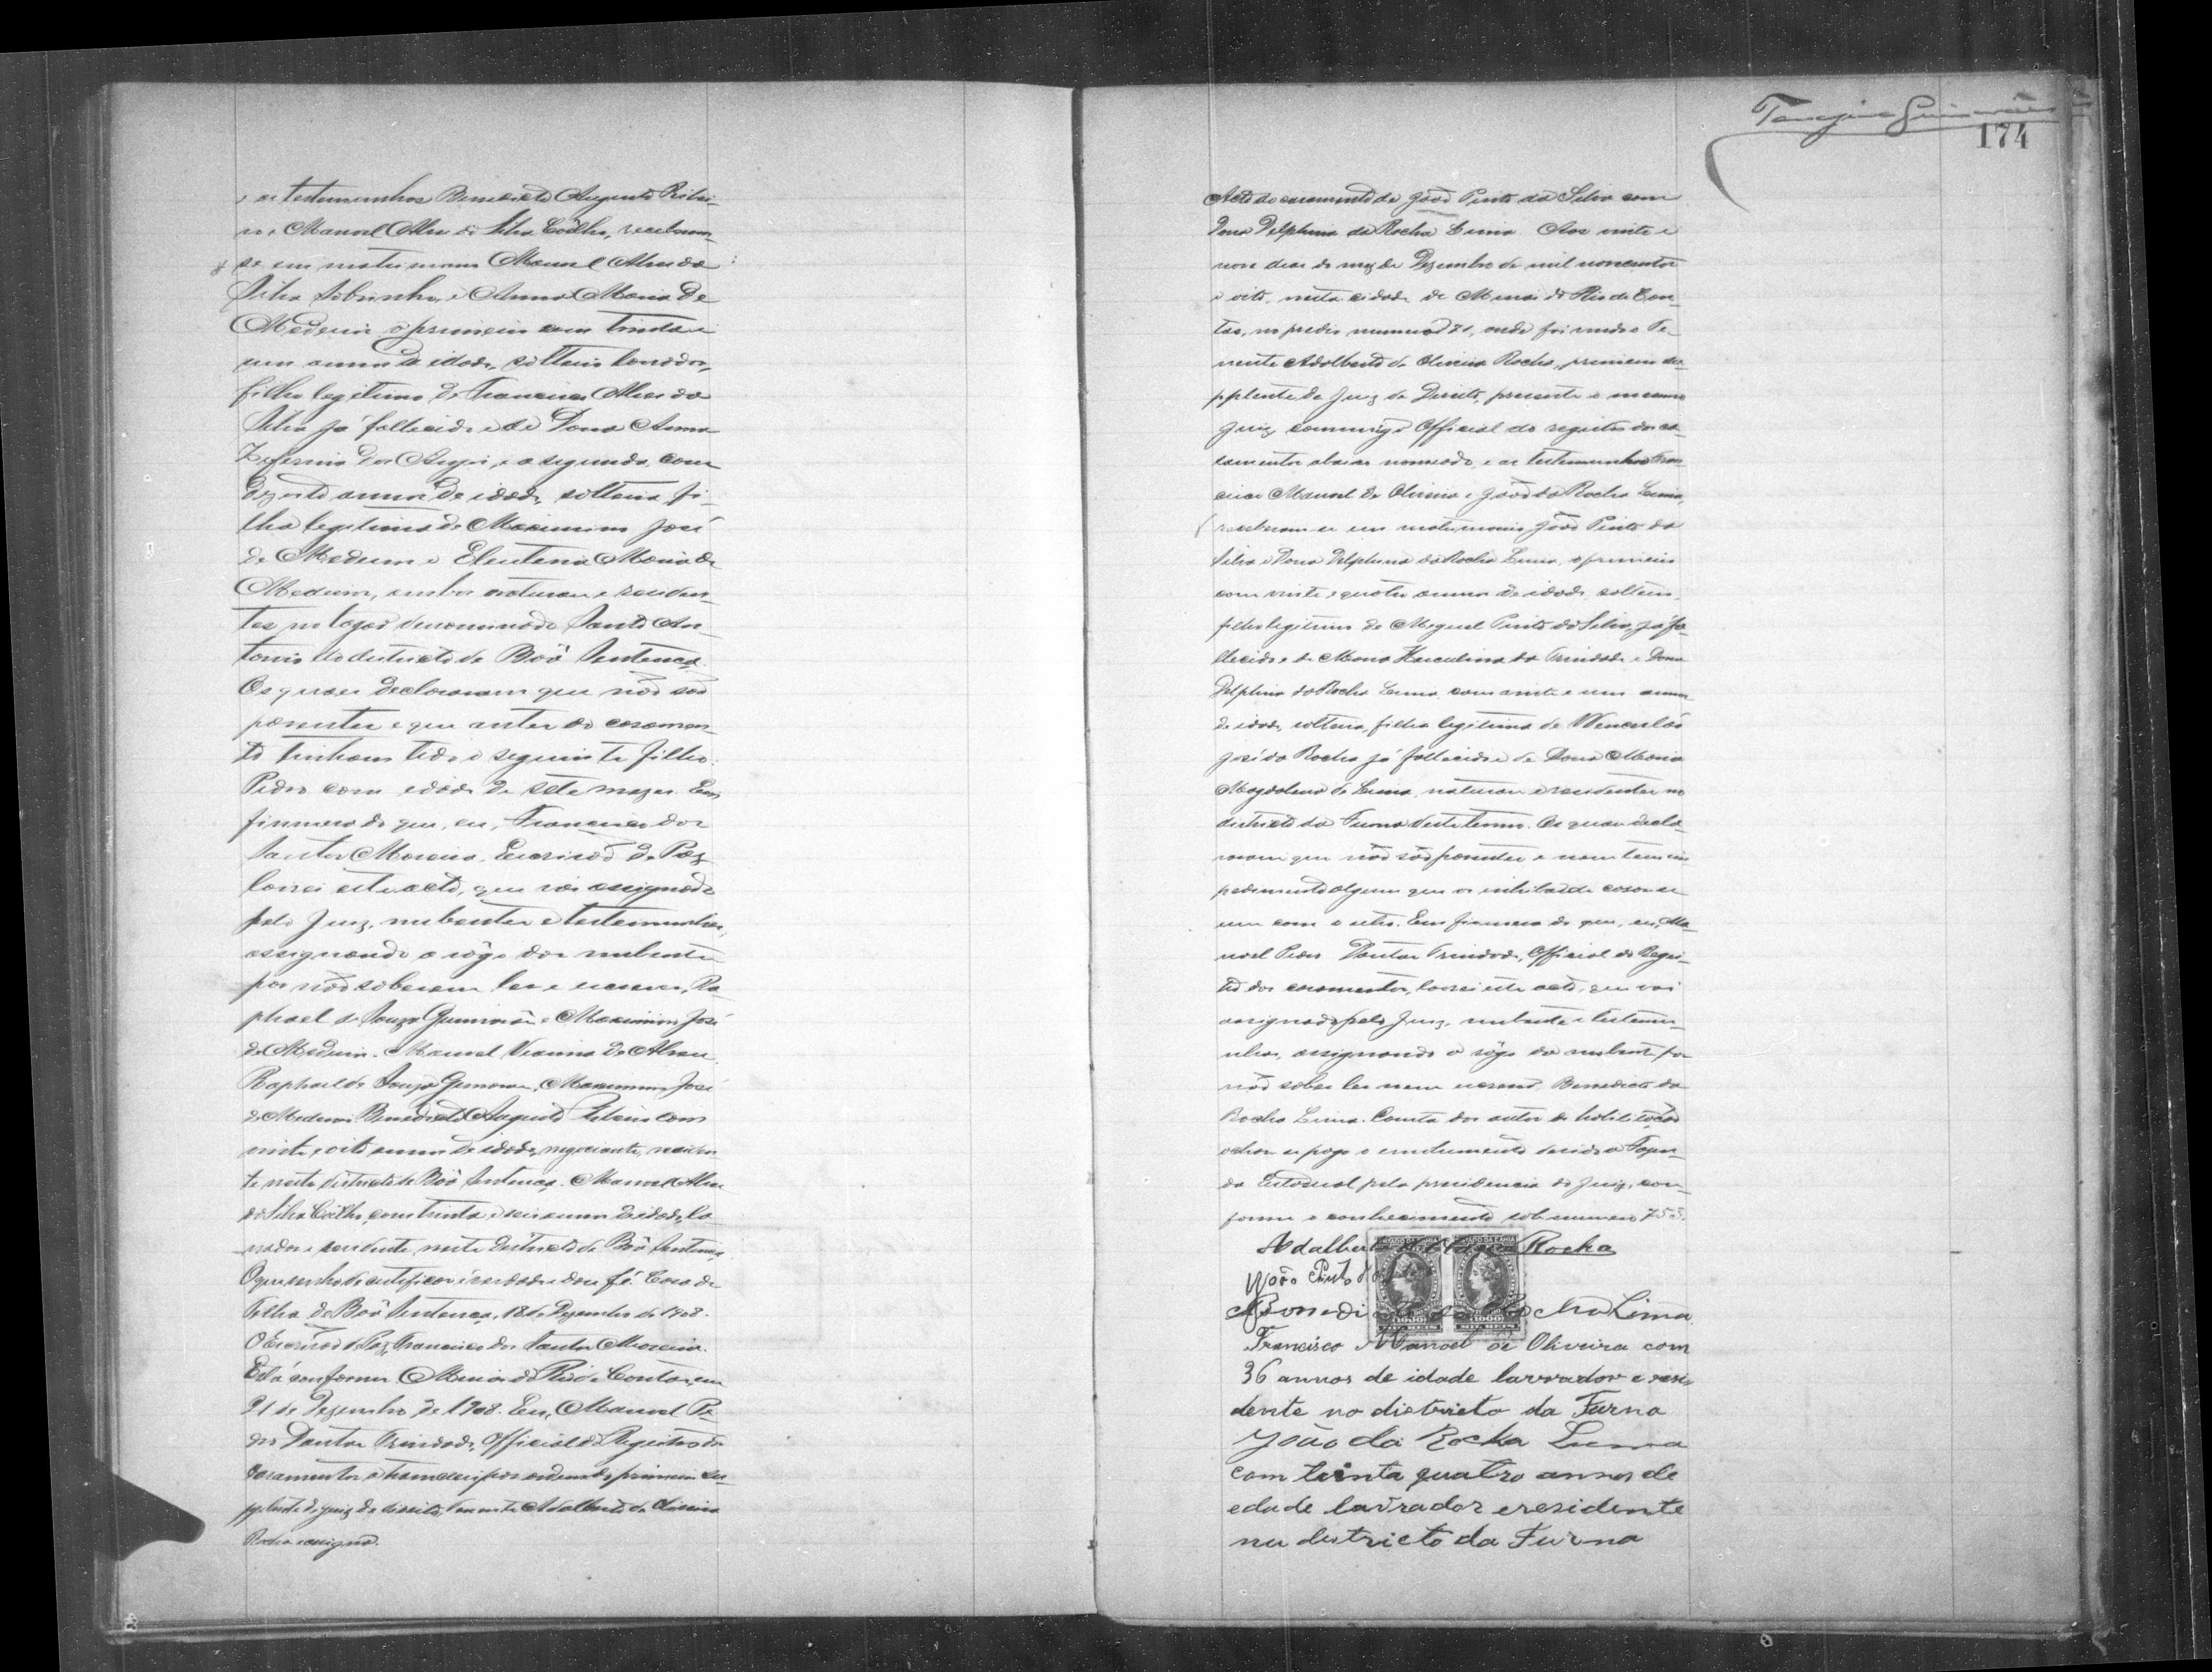 e as testemunhas Benedicto Augusto Ribei-
ro e Manoel Alves da Silva Coêlho, receberam-
se em matrimonio Manoel Alves da
Silva Sobrinho, e Anna Maria de
Medeiros o primeiro com trinta e
um annos de idade, solteiro lavrador,
filho legitimo de Francisco Alves da
Silva já fallecido e de Dona Anna
Zeferina dos Anjos, e a segunda com
dezoito annos de idade, solteira, fi-
lha legitima de Maximino José
de Medeiros e Eleuteria Maria de
Medeiros, ambos naturaes e residen-
tes no lugar denominado Santo An-
tonio do districto de Bôa Sentença.
Os quaes declararam que não são
parentes e que antes do casamen-
to tinham tido o seguinte filho.
Pedro com edade de sete mezes. Em
firmeza do que, eu, Francisco dos
Santos Moreira, Escrivão de Paz
lavrei este acto, que vai assignado
pelo Juiz, nubentes e testemunhas,
assignando a rôgo dos nubentes
por não saberem ler e escrever, Ra-
phael de Souza Guimarães e Maximino José
de Medeiros. Manoel Vianna de Abreu.
Raphael de Souza Guimarães, Maximino José
de Medeiros Benedicto Augusto Ribeiro com
vinte e oito annos de idade, negociante, residen-
te neste districto de Bôa Sentença. Manoel Alves
da Silva Coêlho, com trinta e seis annos de idade, la-
vrador e residente neste districto de Bôa Sentença,
O que tenho de certificar é verdade e dou fé. Casa de
Telha de Bôa Sentença, 18 de Dezembro de 1908.
O Escrivão de Paz, Francisco dos Santos Moreira.
Está conforme. Minas do Rio de Contas, em
21 de Dezembro de 1908. Eu, Manoel Pe-
dro Dantas Trindade, Official do Registro dos
casamentos o transcrevi por ordem do primeiro su-
pplente do juiz de direito, Tenente Adalberto de Oliveira
Rocha e assigno.
174
Acto do casamento de João Pinto da Silva com
Dona Delphina da Rocha Lima. Aos vinte e
nove dias do mez de Dezembro de mil novecentos
e oito, nesta cidade de Minas do Rio de Con-
tas, no predio numero 21, onde foi vindo o Te-
nente Adalberto de Oliveira Rocha, primeiro su-
pplente do Juiz de Direito, presente o mesmo
Juiz, commigo Official do registro dos ca-
samentos abaixo nomeado, e as testemunhas Fran-
cisco Manoel de Oliveira e João da Rocha Lima,
receberam-se em matrimonio João Pinto da
Silva e Dona Delphina da Rocha Lima, o primeiro
com vinte e quatro annos de idade, solteiro,
filho legitimo de Miguel Pinto da Silva, já fa-
llecido e de Maria Herculina da Trindade e Dona
Delphina da Rocha Lima, com vinte e um annos
de idade, solteira, filha legitima de Wencesláo
José da Rocha já fallecido e de Dona Maria
Magdalena de Lima, naturaes e residentes no
districto da Furna deste termo. Os quaes decla-
raram que não são parentes e nem tem im-
pedimento algum que os inhiba de casar-se
um com o outro. Em firmeza do que, eu, Ma-
noel Pedro Dantas Trindade, Official do Regis-
tro dos casamentos, lavrei este acto, que vai
assignado pelo Juiz, nubente e testemu-
nhas, assignando a rôgo da nubente por
não saber ler nem escrever, Benedicto da
Rocha Lima. Consta dos autos de habilitação
achar-se pago o emolumento devido a Fazen-
da Estadual pela presidencia do Juiz, con-
forme o conhecimento sob numero 755.
Adalberto de Oliveira Rocha
João Pinto da Silva
Benedicto da Rocha Lima.
Francisco Manoel de Oliveira com
36 annos de idade lavrador e resi-
dente no districto da Furna
João da Rocha Lima
com trinta quatro annos de
edade lavrador e residente
nu districto da Furna